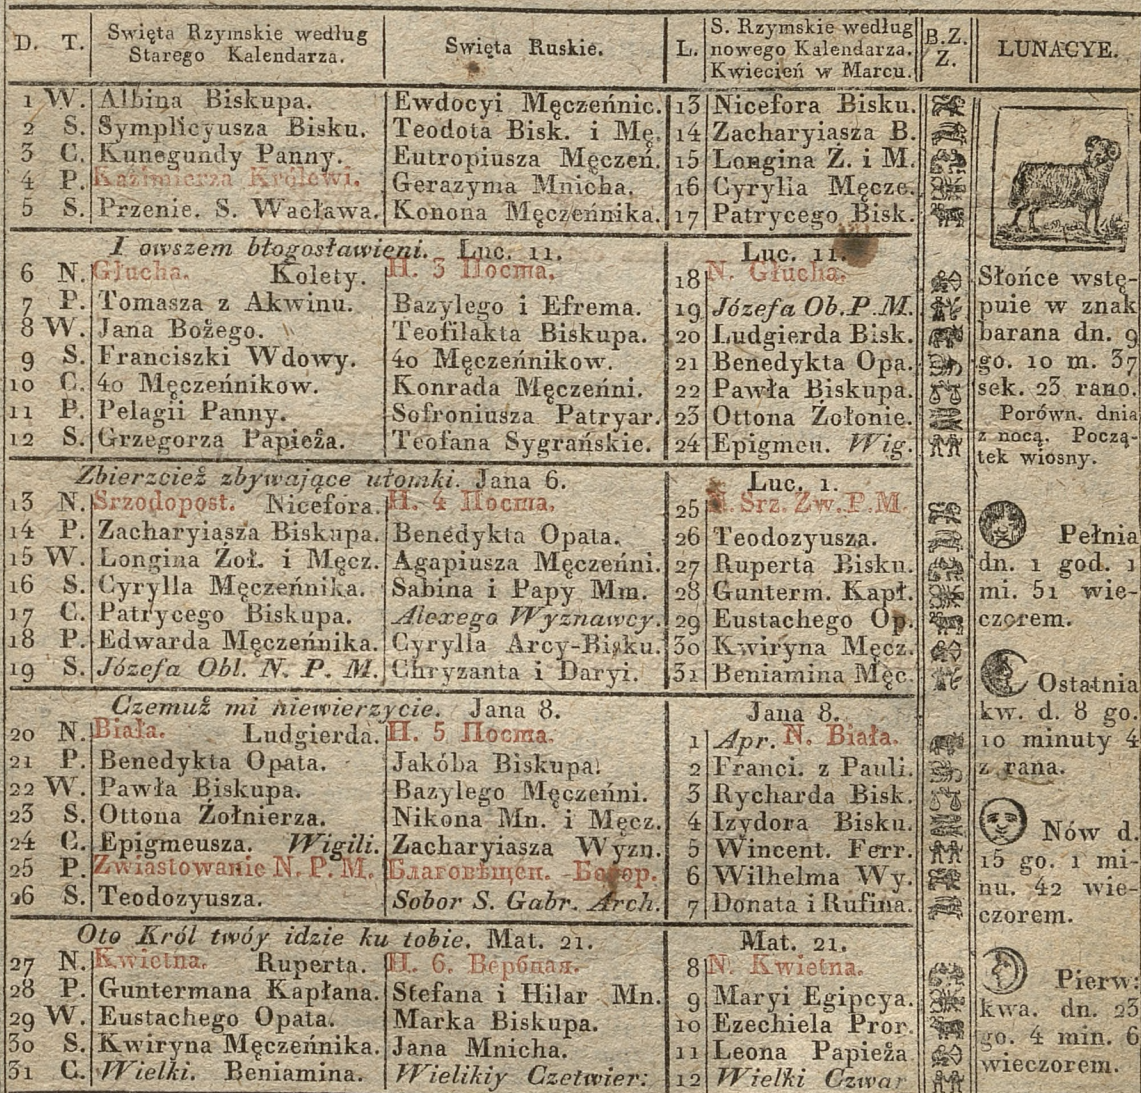 D. T. Swięta Rzymskie według Starego Kalendarza. Swięta Ruskie. L. S. Rzymskie według nowego Kalendarza. Kwiecień w Marcu. B.Z. Z. LUNACYE.
1 W. Albina Biskupa. Ewdocyi Męczeńnic. 13 Nicefora Bisku.
2 S. Symplicyusza Bisku. Teodota Bisk. i Mę. 14 Zacharyiasza B.
3 C. Kunegundy Panny. Eutropiusza Męczeń. 15 Longina Ż. i M.
4 P. Kazimierza Królewi. Gerazyma Mnicha. 16 Cyrylla Męcze.
5 S. Przenie. S. Wacława. Konona Męczeńnika. 17 Patrycego Bisk.
I owszem błogosławieni. Luc. 11. Luc. 11.
6 N. Głucha. Kolety. Н. 3 Посmа. 18 N. Głucha.
7 P. Tomasza z Akwinu. Bazylego i Efrema. 19 Józefa Ob. P. M.
8 W. Jana Bożego. Teofilakta Biskupa. 20 Ludgierda Bisk.
9 S. Franciszki Wdowy. 40 Męczeńnikow. 21 Benedykta Opa.
10 C. 40 Męczeńnikow. Konrada Męczeńni. 22 Pawła Biskupa.
11 P. Pelagii Panny. Sofroniusza Patryar. 23 Ottona Żołonie.
12 S. Grzegorza Papieża. Teofana Sygrańskie. 24 Epigmeu. Wig.
Zbierzcież zbywające ułomki. Jana 6. Luc. 1.
13 N. Srzodopost. Nicefora. Н. 4 Посmа. 25 N. Srz. Zw. P. M.
14 P. Zacharyiasza Biskupa. Benedykta Opata. 26 Teodozyusza.
15 W. Longina Żoł. i Męcz. Agapiusza Męczeńni. 27 Ruperta Bisku.
16 S. Cyrylla Męczeńnika. Sabina i Papy Mm. 28 Gunterm. Kapł.
17 C. Patrycego Biskupa. Alexego Wyznawcy. 29 Eustachego Op.
18 P. Edwarda Męczeńnika. Cyrylla Arcy-Bisku. 30 Kwiryna Męcz.
19 S. Józefa Obl. N. P. M. Chryzanta i Daryi. 31 Beniamina Męc.
Czemuż mi niewierzycie. Jana 8. Jana 8.
20 N. Biała. Ludgierda. Н. 5 Посmа. 1 Apr. N. Biała.
21 P. Benedykta Opata. Jakóba Biskupa. 2 Franci. z Pauli.
22 W. Pawła Biskupa. Bazylego Męczeńni. 3 Rycharda Bisk.
23 S. Ottona Żołnierza. Nikona Mn. i Męcz. 4 Izydora Bisku.
24 C. Epigmeusza. Wigili. Zacharyiasza Wyzn. 5 Wincent. Ferr.
25 P. Zwiastowanie N. P. M. Благовѣщен. Богор. 6 Wilhelma Wy.
26 S. Teodozyusza. Sobor S. Gabr. Arch. 7 Donata i Rufina.
Oto Król twóy idzie ku tobie. Mat. 21. Mat. 21.
27 N. Kwietna. Ruperta. Н. 6. Вербная. 8 N. Kwietna.
28 P. Guntermana Kapłana. Stefana i Hilar Mn. 9 Maryi Egipcya.
29 W. Eustachego Opata. Marka Biskupa. 10 Ezechiela Pror.
30 S. Kwiryna Męczeńnika. Jana Mnicha. 11 Leona Papieża
31 C. Wielki. Beniamina. Wielikiy Czetwier: 12 Wielki Czwar
Słońce wstę-
puie w znak
barana dn. 9
go. 10 m. 37
sek. 23 rano.
Porówn. dnia
z nocą. Począ-
tek wiosny.
Pełnia
dn. 1 god. 1
mi. 51 wie-
czorem.
Ostatnia
kw. d. 8 go.
10 minuty 4
z rana.
Nów d.
15 go. 1 mi-
nu. 42 wie-
czorem.
Pierw:
kwa. dn. 23
go. 4 min. 6
wieczorem.